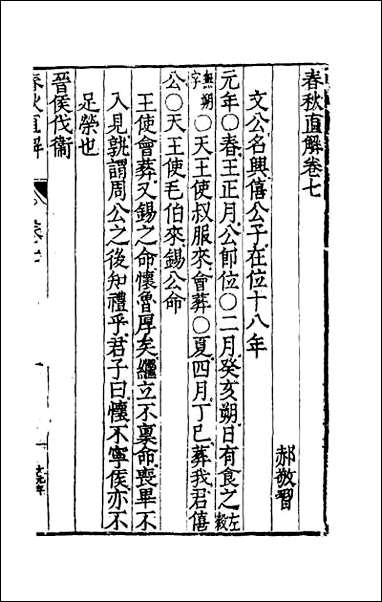 春秋直解卷七
郝敬習
文公名興僖公子在位十八年
元年〇春王正月公即位〇二月癸亥朔日有食之左穀
無朔字〇天王使叔服來會葬〇夏四月丁巳葬我君僖
公〇天王使毛伯來錫公命
王使會葬又錫之命懷魯厚矣繼立不稟命喪畢不
入見孰謂周公之後知禮乎君子曰懷不寧侯亦不
足榮也
晉侯伐衞
春秋直解